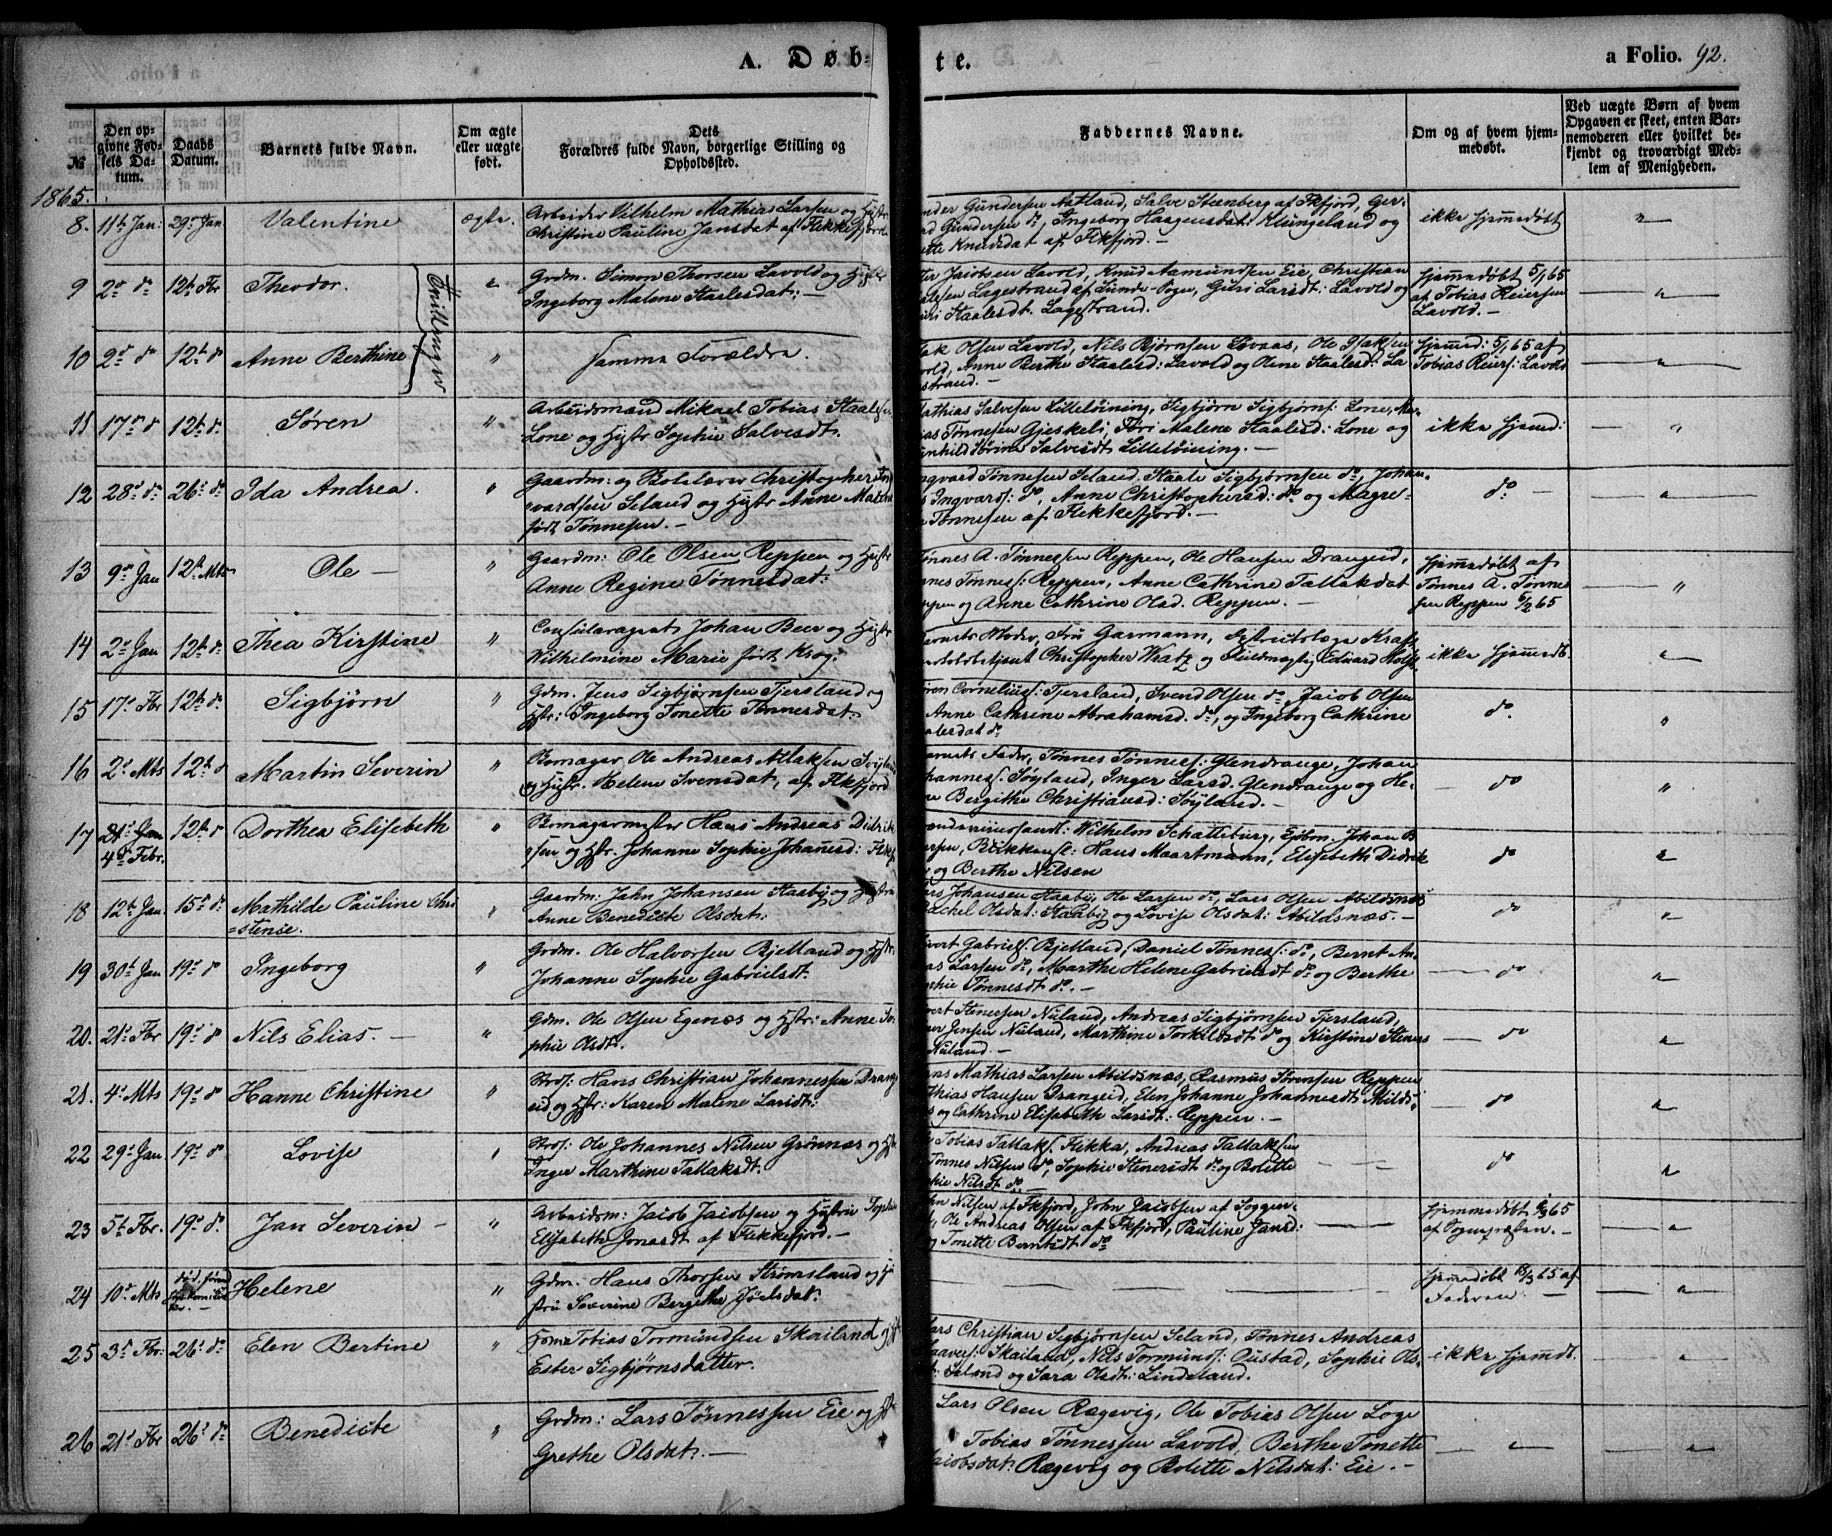 A. Døb-
te.
a Folio. 92.
№
Den op-
givne Fød-
sels Da-
tum.
Daabs
Datum.
Barnets fulde Navn.
Om ægte
eller uægte
født.
Dets
Forældres fulde Navn, borgerlige Stilling og
Opholdssted.
Faddernes Navne.
Om og af hvem hjem-
medøbt.
Ved uægte Børn af hvem
Opgaven er skeet, enten Bar-
nemoderen eller hvilket be-
kjendt og troværdigt Med-
lem af Menigheden.
1865.
8. 11te Jan: 29de Jan Valentine ægte.
Arbeider Vilhelm Mathias Larsen og Hustr
Christine Pauline Jansdat af Flekkefjord
nder Gundersen Aatland, Salve Steenberg af Fkfjord, Ger-
Gundersen do, Ingeborg Haagensdat: Klungeland og
ette Knudsdat af Fkfjord. —
ikke hjemmedøbt "
9 2de do 12te Fbr Theodor. Tvillinger "
Grdm. Simon Thorsen Lavold og Hustr
Ingeborg Malene Staalesdat: —
ter Jacobsen Lavold, Knud Aamundsen Eie, Christian
lesen Lagestrand af Lunde Sogn, Guri Larsdt: Lavold og
uri Staalesdt. Lagestrand.
hjemmedøbt 5/1 65
af Tobias Reiersen
Lavold. — "
10 2de do 12te do Anne Berthine "
Samme Forældre.
lak Olsen Lavold, Nils Bjørnsen Løvaas, Ole Islaksen
vold, Anne Berthe Staalesd: Lavold og Olene Staalesd: La-
estrand. —
hjemmed: 5/1 65 af
Tobias Reiers: Lavold "
11 17de do 12te do Søren "
Arbeidsmand Mikael Tobias Staalesen
Lone og Hustr Sophie Salvesdt.
athias Salvesen Lilleløining, Sigbjørn Sigbjørns: Lone, Ma-
ias Tønnesen Gjeskeli, Siri Malene Staalesd: Lone og
unhild Sørine Salvesdt Lilleløining. —
ikke hjemd: "
12 28de do 26de do Ida Andrea. "
Gaardm: og Skolelærer Christopher Ing
vardsen Seland og Hustr Anne Malene
født Tønnesen. —
ngvard Tønnesen Seland, Staale Sigbjørnsen do, Johan-
s Ingvards: do, Anne Christophersd: do og Magre-
Tønnesen af Flekkefjord. —
do — "
13 9de Jan 12te Mts Ole — "
Gaardm: Ole Olsen Reppen og Hustr
Anne Regine Tønnesdat:
ønnes A. Tønnessen Reppen, Ole Hansen Drangeid,
nnes Tønnes: Reppen, Anne Cathrine Tallaksdat
eppen og Anne Cathrine Olsd. Reppen. —
hjemmedøbt af
Tønnes A. Tønne
sen Reppen 5/2 65 "
14 2de Jan 12te do Thea Kirstine "
Consularagent Johan Beer og Hustr
Wilhelmine Marie født Krog.
arnets Moder, Fru Garmann, Distriktslæge Kraft
Christopher Wratz og Fuldmægtig Eduard Wolff
ikke hjemmedt. "
15 17de Fbr 12te do Sigbjørn "
Gdm. Jens Sigbjørnsen Tjersland og
Hstr: Ingeborg Tonette Tønnesdat.
ren Cornelius: Tjersland, Svend Olsen do, Jacob Olsen
Anne Cathrine Abrahamsd. do, og Ingeborg Cathrine
alesdat do
do. "
16 2de Mts 12te do Martin Severin "
Skomager Ole Andreas Atlaksen Søyland
og Hustr. Helene Svensdat, af Fkfjord
arnets Fader, Tønnes Tønnes: Glendrange, Johan
hannes: Søyland, Inger Larsd. Glendrange og He-
ne Bergithe Christiansd: Søyland. —
do "
17 21de Jan 4de Febr. 12te do Dorthea Elisebeth "
Skomagermester Hans Andreas Didrik
sen og Hstr. Johanne Sophie Johannesd: Fkfj
Wilhelm Schatteburg, Johan B
Hans Maartmann, Elisebeth Didrik
og Berthe Nilsen
do "
18 12te Jan 15de do Mathilde Pauline Chri
=stense. "
Gaardm: Jahn Johansen Staaby og Hustru
Anne Benedicte Olsdat:
ars Johansen Staaby, Ole Larsen do, Lars Olsen Abildsnæs
achel Olsdat: Staaby og Lovise Olsdat: Abildsnæs. —
do "
19 30te Jan 19de do Ingeborg "
Grdm. Ole Halvorsen Bjelland og Hstr
Johanne Sophie Gabrielsdt.
ivert Gabriels: Bjelland, Daniel Tønnes: do, Bernt An-
as Larsen do, Marthe Helene Gabrielsdt do og Berthe
phie Tønnesdt do. —
do "
20. 21de Fbr 19de do Nils Elias. — "
Gdm. Ole Olsen Egenæs og Hstr: Anne So
phie Olsdt.
vert Stenersen Nuland, Andreas Sigbjørnsen Tjersland,
er Jensen Nuland, Marthine Torkelsdt do og Kirstine Steners
Nuland. —
do "
21. 4de Mts 19de do Hanne Christine "
Strds: Hans Christian Johannessen Drang
eid og Hstr: Karen Malene Larsdt:
ns Mathias Larsen Abildsnæs, Rasmus Sørensen Reppen
thias Hansen Drangeid, Elen Johanne Johannesdt Abilds
s og Cathrine Elisabeth Larsdt: Reppen. —
do "
22 29de Jan 19de do Lovise "
Strds: Ole Johannes Nilsen Grønnæs og Hst
Inger Marthine Tallaksdt.
Tobias Tallaks: Flikka, Andreas Tallaksen
Tønnes Nilsen do, Sophie Stenersdt do og Bolette
phie Nilsdt do.
do "
23 5te Fbr. 19de do. Jan Severin — "
Arbeidsm: Jacob Jacobsen og Hustru Sophie
Elisabeth Jonasdt af Flekkefjord. —
hn Nilsen af Fkfjord, John Jacobsen af Soggen-
Ole Andreas Olsen af Fkfjord, Pauline Jansd:
og Tonette Berntsdt do
hjemmedøbt 65
af Sognepræsten. — "
24 10de Mts død Helene "
Gdm: Hans Thorsen Strømsland og Hu
stru Severine Bergithe Joelsdat:
hjemmedøbt 13/3 65 af
Faderen — "
25 3de Fbr. 26de do. Elen Bertine "
Tobias Tormundsen Skailand og Hst
Ester Sigbjørnsdatter.
ars Christian Sigbjørnsen Seland, Tønnes Andreas
aavers: Skailand, Nils Tormunds: Oustad, Sophie Ols
t: Seland og Sara Olsdt: Lindeland.
ikke hjemdt. "
26 21de Fbr 26de do Benedicte "
Grdm: Lars Tønnessen Eie og Hst
Grethe Olsdat: —
Lars Olsen Rægevig, Ole Tobias Olsen Loge
Tobias Tønnessen Lavold, Berthe Tonette
acobsdat: Rægevig og Bolette Nilsdat: Eie. —
" "